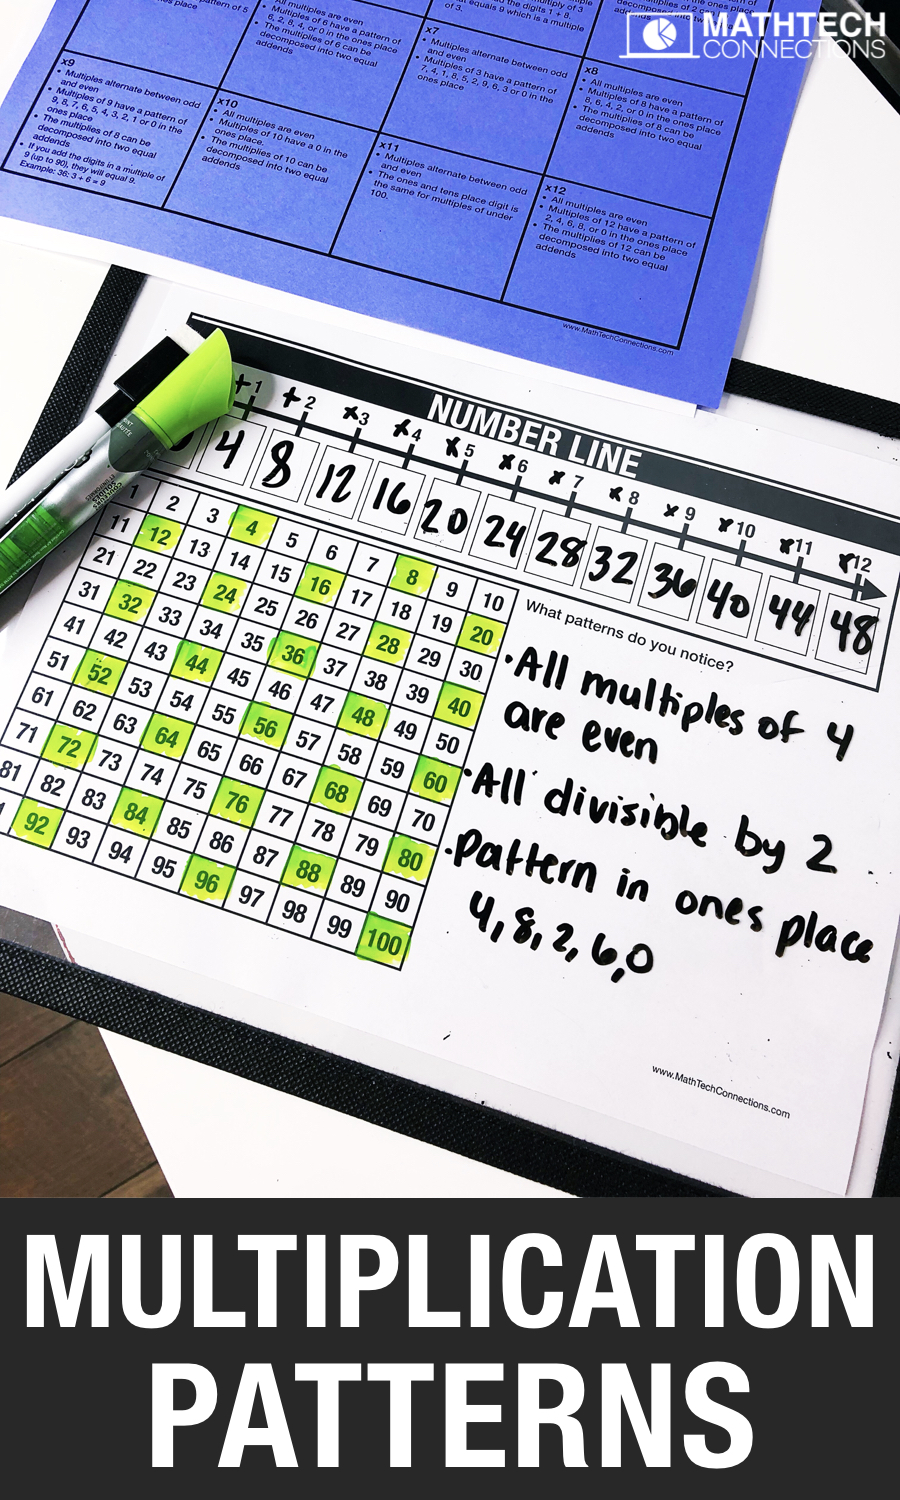 MATHTECH
CONNECTIONS
place
All multiples are even
Multiples of 6 have a pattern of
6, 2, 8, 4, or 0 in the ones place
The multiples of 6 can be
decomposed into two equal
addends
x7
• Multiples alternate between odd
and even
• Multiples of 3 have a pattern of
7, 4, 1, 8, 5, 2, 9, 6, 3 or 0 in the
ones place
x8
• All multiples are even
• Multiples of 8 have a pattern of
8, 6, 4, 2, or 0 in the ones place
• The multiples of 8 can be
decomposed into two equal
addends
x9
• Multiples alternate between odd
and even
• Multiples of 9 have a pattern of
9, 8, 7, 6, 5, 4, 3, 2, 1 or 0 in the
ones place
• The multiples of 8 can be
decomposed into two equal
addends
• If you add the digits in a multiple of
9 (up to 90), they will equal 9.
Example: 36: 3 + 6 = 9
x10
• All multiples are even
• Multiples of 10 have a 0 in the
ones place.
• The multiples of 10 can be
decomposed into two equal
addends
x11
• Multiples alternate between odd
and even
• The ones and tens place digit is
the same for multiples of under
100.
x12
• All multiples are even
• Multiples of 12 have a pattern of
2, 4, 6, 8, or 0 in the ones place
• The multiples of 12 can be
decomposed into two equal
addends
www.MathTechConnections.com
NUMBER LINE
x1 x2 x3 x4 x5 x6 x7 x8 x9 x10 x11 x12
4 8 12 16 20 24 28 32 36 40 44 48
1 2 3 4 5 6 7 8 9 10
11 12 13 14 15 16 17 18 19 20
21 22 23 24 25 26 27 28 29 30
31 32 33 34 35 36 37 38 39 40
41 42 43 44 45 46 47 48 49 50
51 52 53 54 55 56 57 58 59 60
61 62 63 64 65 66 67 68 69 70
71 72 73 74 75 76 77 78 79 80
81 82 83 84 85 86 87 88 89 90
92 93 94 95 96 97 98 99 100
What patterns do you notice?
• All multiples of 4
are even
• All divisible by 2
• Pattern in ones place
4, 8, 2, 6, 0
www.MathTechConnections.com
MULTIPLICATION
PATTERNS